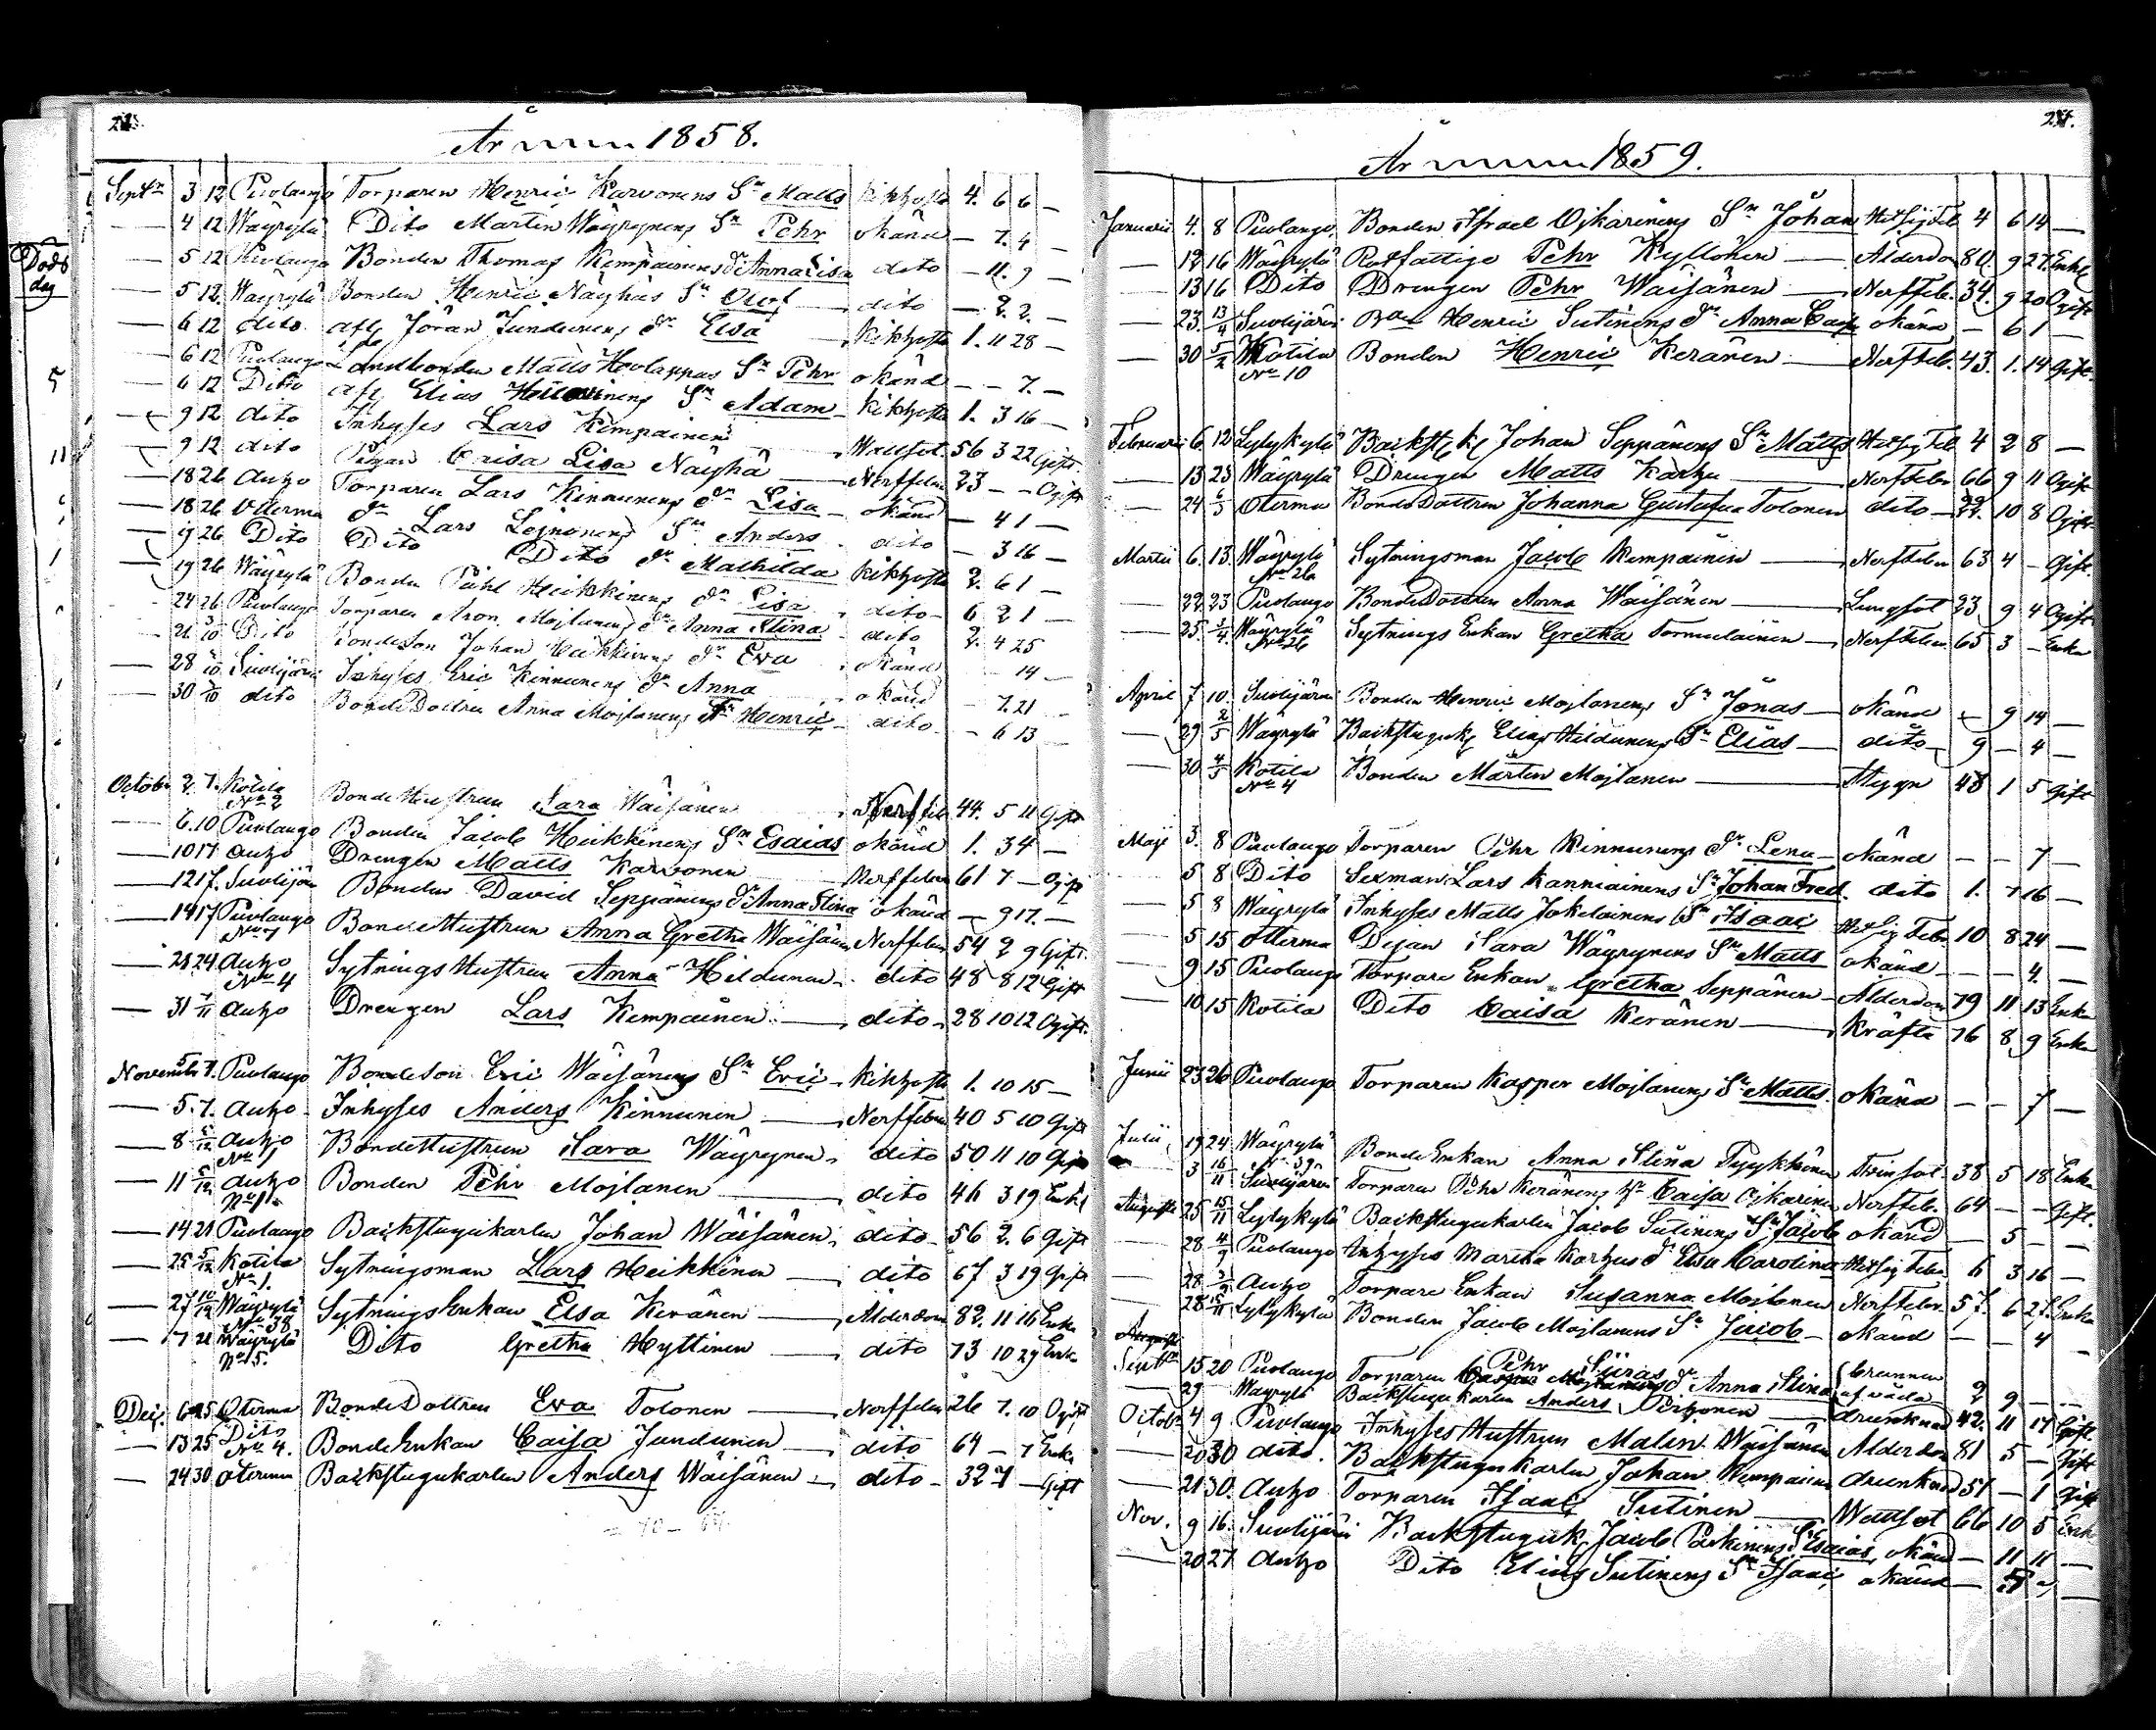 År 1858.
Septr 3 12 Puolango Torparen Henric Karvonens Sn Matts Kikhosta 4. 6 6 —
— 4 12 Wäyrylä Dito Martin Wäyrynens Sn Pehr okänd — 7. 4 —
— 5 12 Puolango Bonden Thomas Kempainens dr Anna Lisa dito — 11. 9 —
— 5 12. Wäyrylä Bonden Henric Näyhäs Sn Olof dito — 2 2. —
— 6 12 dito afl Jöran Jundunens dr Lisa Kikhosta 1. 11 28 —
— 6 12 Puolango Landbonden Matts Holappas Sn Pehr okänd — — 7. —
— 6 12 Dito afl Elias Sn Adam Kikhosta 1. 3 16 —
— 9 12 dito Inhyses Lars Kempainen Wattsot 56 3 22 Gift
— 9 12 dito Pigan Caisa Lisa Näyhä Nerffeber 23 — — Ogift
— 18 26 Auho Torparen Lars Kinnunens dr Lisa okänd — 4 1 —
— 18 26 Oterma dr Lars Leinonens Sn Anders dito — 3 16 —
— 19 26 Dito Dito Dito dr Mathilda Kikhosta 2. 6 1 —
— 19 26 Wäyrylä Bonden Påhl Heikkinens dr Lisa dito 6 2 1 —
— 24 26 Puolango Torparen Aron Mojlanens dr Anna Stina dito 2. 4 25
— 21 3/10 Dito Bondeson Johan Heikkinens dr Eva okänd 14 —
— 28 /10 Suolijärvi Inhyses Eric Kinnunens dr Anna okänd — 7. 21 —
— 30 /10 dito BondeDottren Anna Mojlanens Sn Henric dito — 6 13 —
Octobr 2. 7. Kotila No 2 BondeHustrun Sara Wäisänen Nerffeb 44. 5 11 Gift
— 6. 10 Puolango Bonden Jacob Heikkinens Sn Esaias okänd 1. 3 4 —
— 10 17 Auho Drengen Matts Karvonen Nerffeber 61 7 — Ogift
— 12 17. Suolijärvi Bonden David Seppänens dr Anna Stina okänd — 9 17. —
— 14 17 Puolango BondeHustrun Anna Gretha Wäisänen Nerffeber 54 2 9 Gift
— 24 Auho No 4 Sytnings Hustrun Anna Hildunen dito 48 8 12 Gift
— 31 7/11 Auho Drengen Lars Kempainen dito 28 10 12 Ogift
November 5 7. Puolango BondeSon Eric Wäisänens Sn Eric Kikhosta 1. 10 15 —
— 5. 7. Auho Inhyses Anders Kinnunen Nerffeber 40 5 10 Gift
— 8 5/12 Auho No 1 BondeHustrun Sara Wäyrynen dito 50 11 10 Gift
— 11 5/12 Auho Bonden Pehr Mojlanen dito 46 3 19 Enkl
— 14 21 Puolango Backstugukarlen Johan Wäisänen dito 56 2. 6 Gift
— 25 5/12 Kotila No 1. Sytningsman Lars Heikkinen dito 67 3 19 Gift
— 27 10/12 Wäyrylä No 38 SytningsEnkan Elsa Keränen Ålderdom 82. 11 16 Enka
— 7 21 Wäyrylä No 15. Dito Gretha Hyttinen dito 73 10 29 Enka
Dec. 6 25 Oterma BondeDottren Eva Tolonen Nerffeber 26 7. 10 Ogift
— 13 25 Dito No 4. BondeEnkan Caisa Jundunen dito 64 — 7 Enka
— 24 30 Oterma Backstugukarlen Anders Wäisänen dito 32 7 — Gift
Döds
dag
År 1859.
Januarii 4. 8 Puolango Bonden Israel Ojkarinens Sn Johan Hetsig Feb 4 6 14 —
— 12 16 Wäyrylä Rotfattige Pehr Kyllönen Ålderdom 80. 9 27. Enkl
— 13 16 Dito Drengen Pehr Wäisänen Nerffeb. 34. 9 20 Ogift
— 23. 13/4 Suolijärvi Henric Sutinens dr Anna Caisa okänd — 6 1 —
— 30 5/2 Kotila No 10 Bonden Henric Keränen Nerffeb. 43. 1. 14 Gift.
Februarii 6. 12 Lylykylä Backst.k. Johan Seppänens Sn Matts Hetsig Feb 4 2 8 —
— 13 23 Wäyrylä Drengen Matts Karhu Nerffeber 66 9 11 Ogift
— 24 6/3 Oterma BondeDottren Johanna Gustafva Tolonen dito 22. 10 8 Ogift
Martii 6. 13. Wäyrylä No 26 Sytningsman Jacob Kempainen Nerffeber 63 4 — Gift.
— 22. 23 Puolango BondeDottren Anna Wäisänen Lungsot 23 9 4 Ogift
— 25. 3/4. Wäyrylä No 26 Sytnings Enkan Gretha Tormulainen Nerffeber 65 3 — Enka
April 7 10. Suolijärvi Bonden Henric Mojlanens Sn Jonas okänd — 9 14 —
— 29 2/5 Wäyrylä Backstuguk. Elias Hildunens Sn Elias dito 9 — 4 —
— 30 4/5 Kotila No 4 Bonden Mårten Mojlanen Stygn 48 1 5 Gift
Maji 3. 8 Puolango Torparen Pehr Kinnunens dr Lena okänd — — 7 —
5 8 Dito Sexman Lars Kanniainens Sn Johan Fred. dito 1. 7 16 —
— 5 8 Wäyrylä Inhyses Matts Jokelainens Sn Isaac Hetsig Feber 10 8 24 —
— 5 15 Otterma Pigan Sara Wäyrynens Sn Matts okänd — — 4. —
— 9 15 Puolango Torpare Enkan Gretha Seppänen Ålderdom 79 11 13 Enka
— 10 15 Kotila Dito Caisa Keränen Kräfta 76 8 9 Enka
Junii 23 26 Puolango Torparen Kasper Mojlanens Sn Matts okänd — — 7 —
Julii 19 24 Wäyrylä 39 BondeEnkan Anna Stina Tyykkönen Tvinsot 38 5 18 Enka
3 16/11 Suolijärvi Torparen Pehr Keränens Hu Caisa Ojkarinen Nerffeb. 64 — — Gift.
Augusti 25 15/11 Lylykylä Backstugukarlen Jacob Sutinens Sn Jacob okänd — 5 — —
— 28 4/9 Puolango Inhyses Martha Karhus dr Elsa Carolina Hetsig Feber 6 3 16 —
— 28 Auho Torpare Enkan Susanna Mojlanen Nerffeber 57. 6 27. Enka
28 15/11 Lylykylä Bonden Jacob Mojlanens Sn Jacob okänd — — 4 —
Augusti
Septr 15 20 Puolango Torparen Pehr Siiras dr Anna Stina brunnen af våda 2 9 — —
— 29 Wäyrylä Backstugukarlen Anders Pirhonen drunknad 42. 11 17 Gift
Octobr 4 9 Puolango Inhyses Hustrun Malin Wäisänen Ålderdom 81 5 — Gift
— 20 30 dito. Backstugukarlen Johan Kempainen drunknad 51 — 1 Gift
— 21 30. Auho Torparen Isaac Sutinen Wattsot 66 10 5 Enkl
Nov. 9 16. Suolijärvi Backstuguk. Jacob Parkinens Sn Esaias okänd — 11 11 —
— 20 27 Auho Dito Elias Sutinens Sn Isaac okänd —